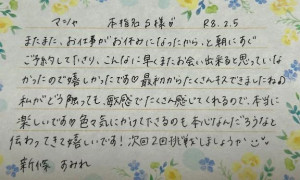 本指名5様が R8.2.5
またまた、お仕事がお休みになったから、と朝にすぐ
ご予約して下さり、こんなに早くまたお会い出来ると思っていな
かったので嬉しかったです♡最初からたくさんキスできましたね
私がどう触っても、敏感でたくさん感じてくれるので、本当に
楽しいです♡色々気にかけて下さるのも本心なんだろうなと
伝わってきて嬉しいです!次回2回挑戦しましょうか
新條 すみれ